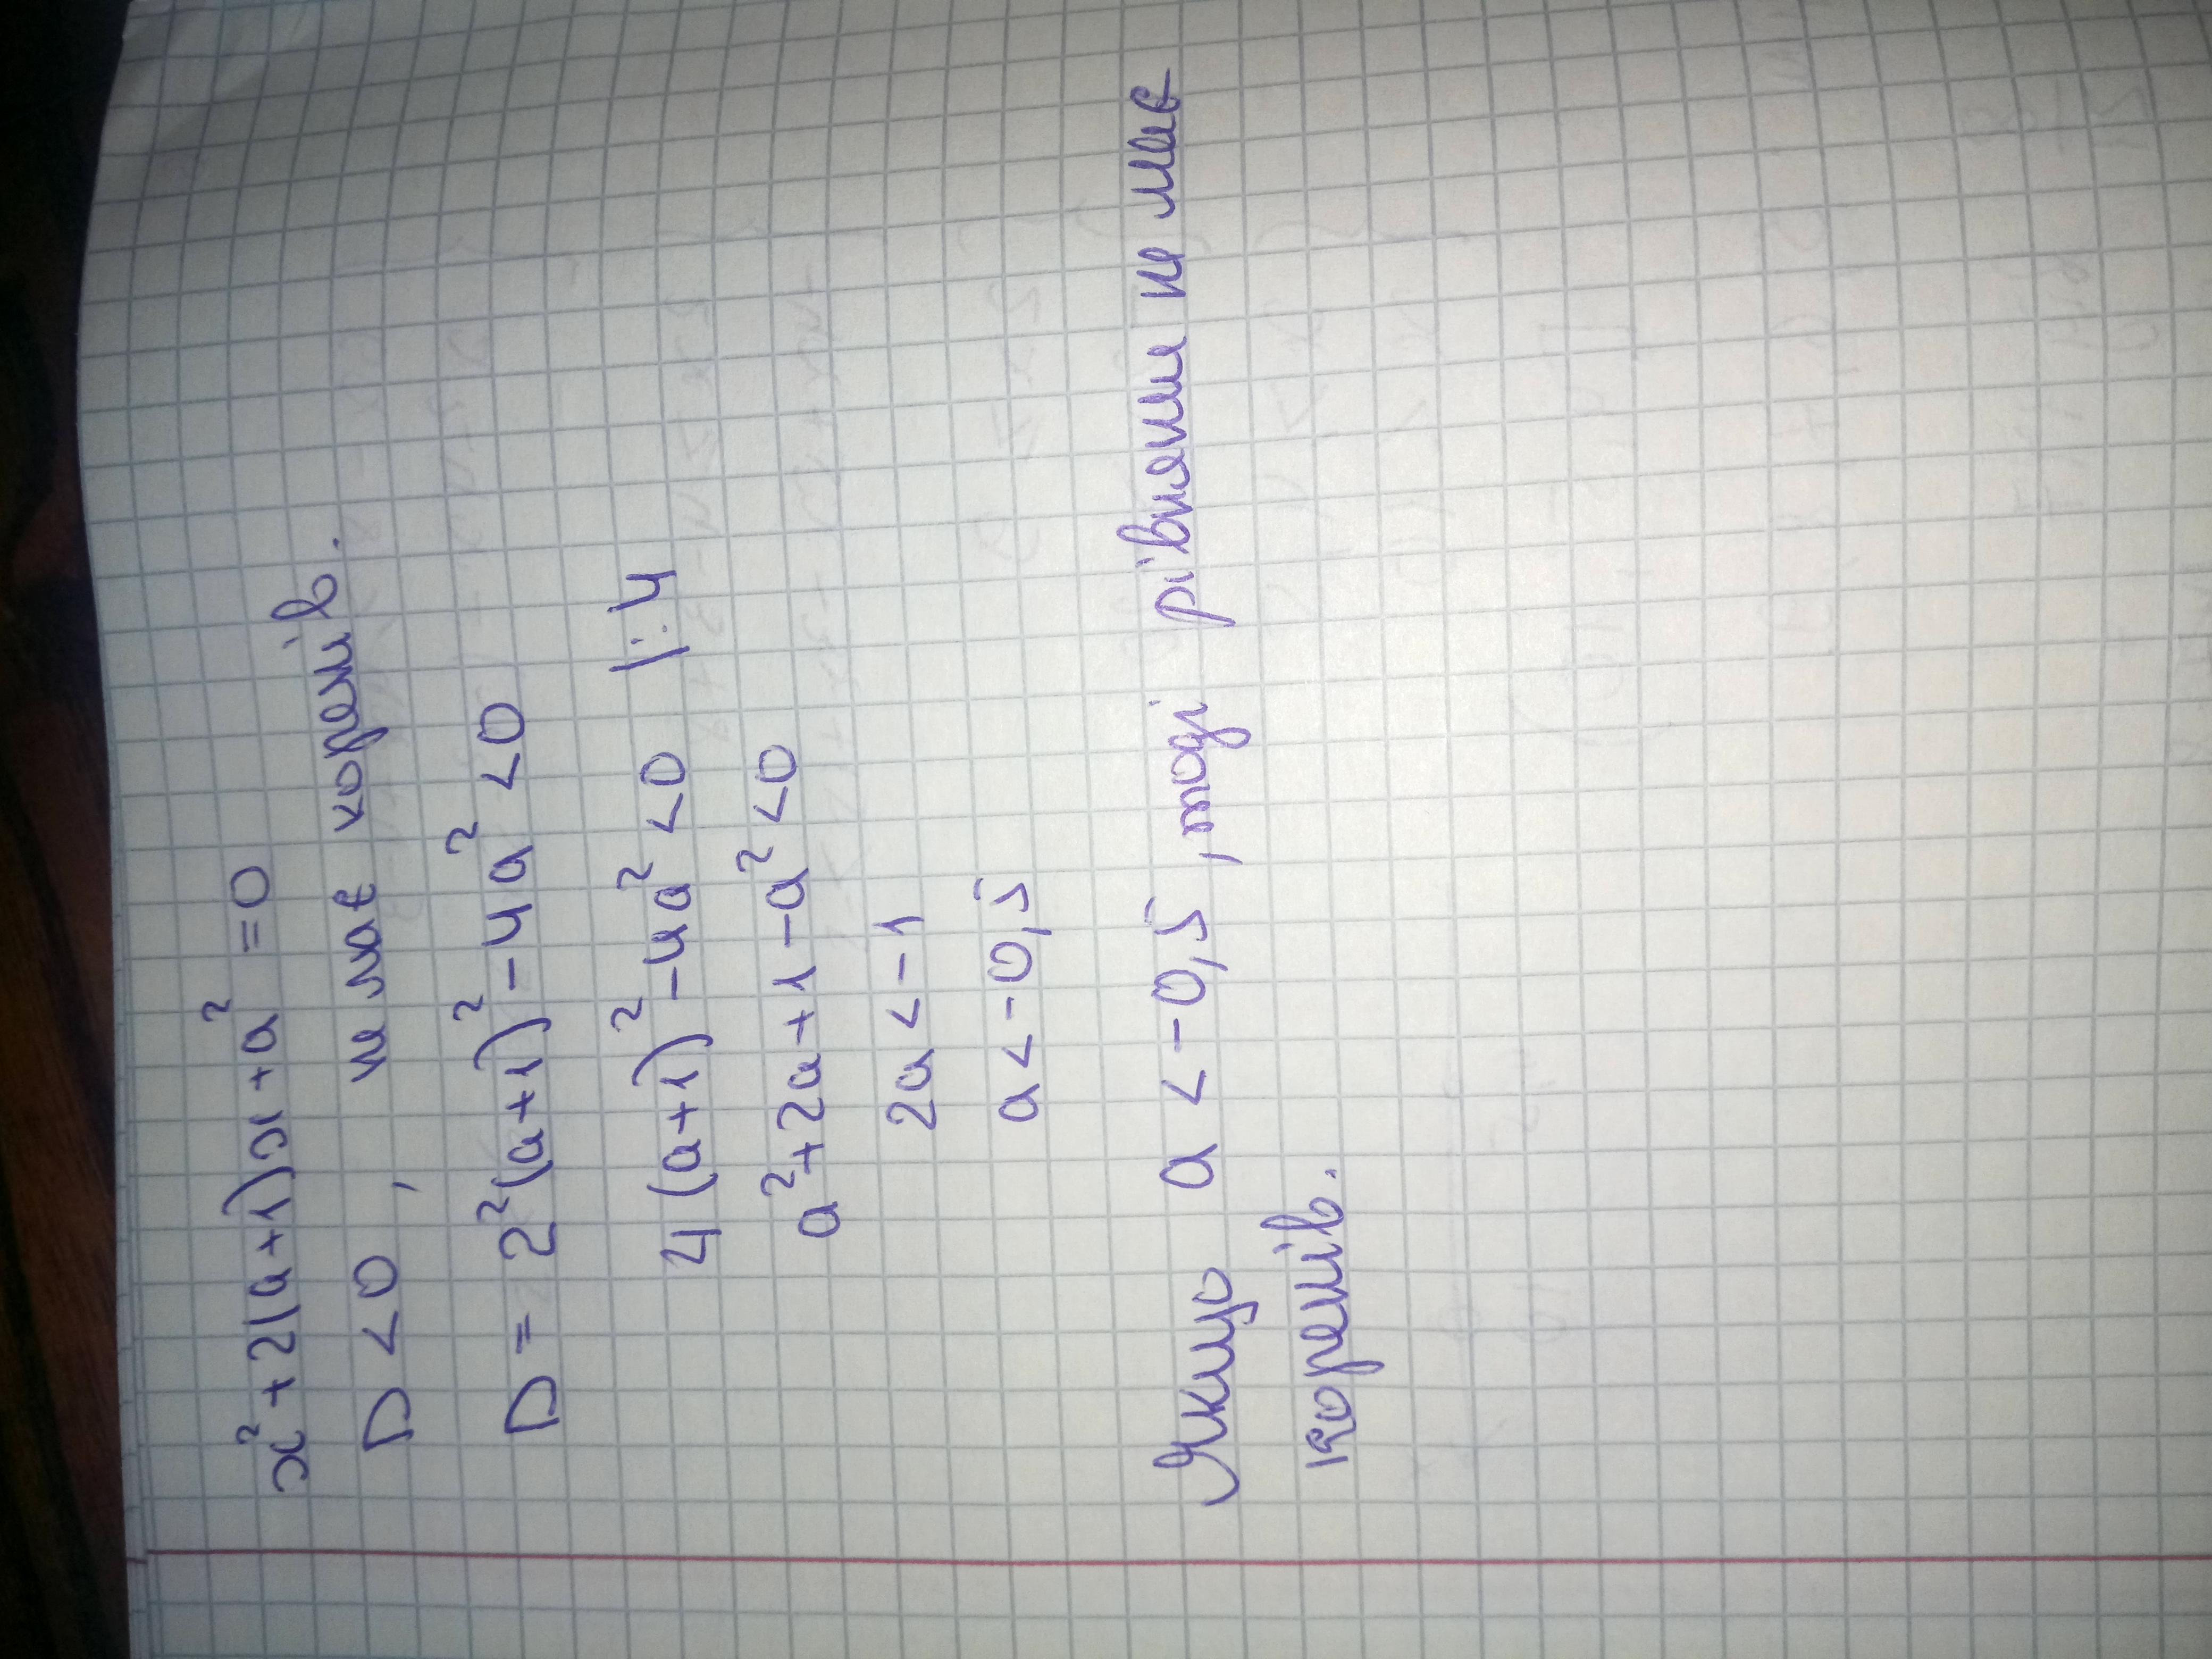 x² + 2(a+1)x + a² = 0
D < 0, не має коренів.
D = 2²(a+1)² - 4a² < 0
4(a+1)² - 4a² < 0 |:4
a² + 2a + 1 - a² < 0
2a < -1
a < -0,5
Якщо a < -0,5, тоді рівняння не має
коренів.